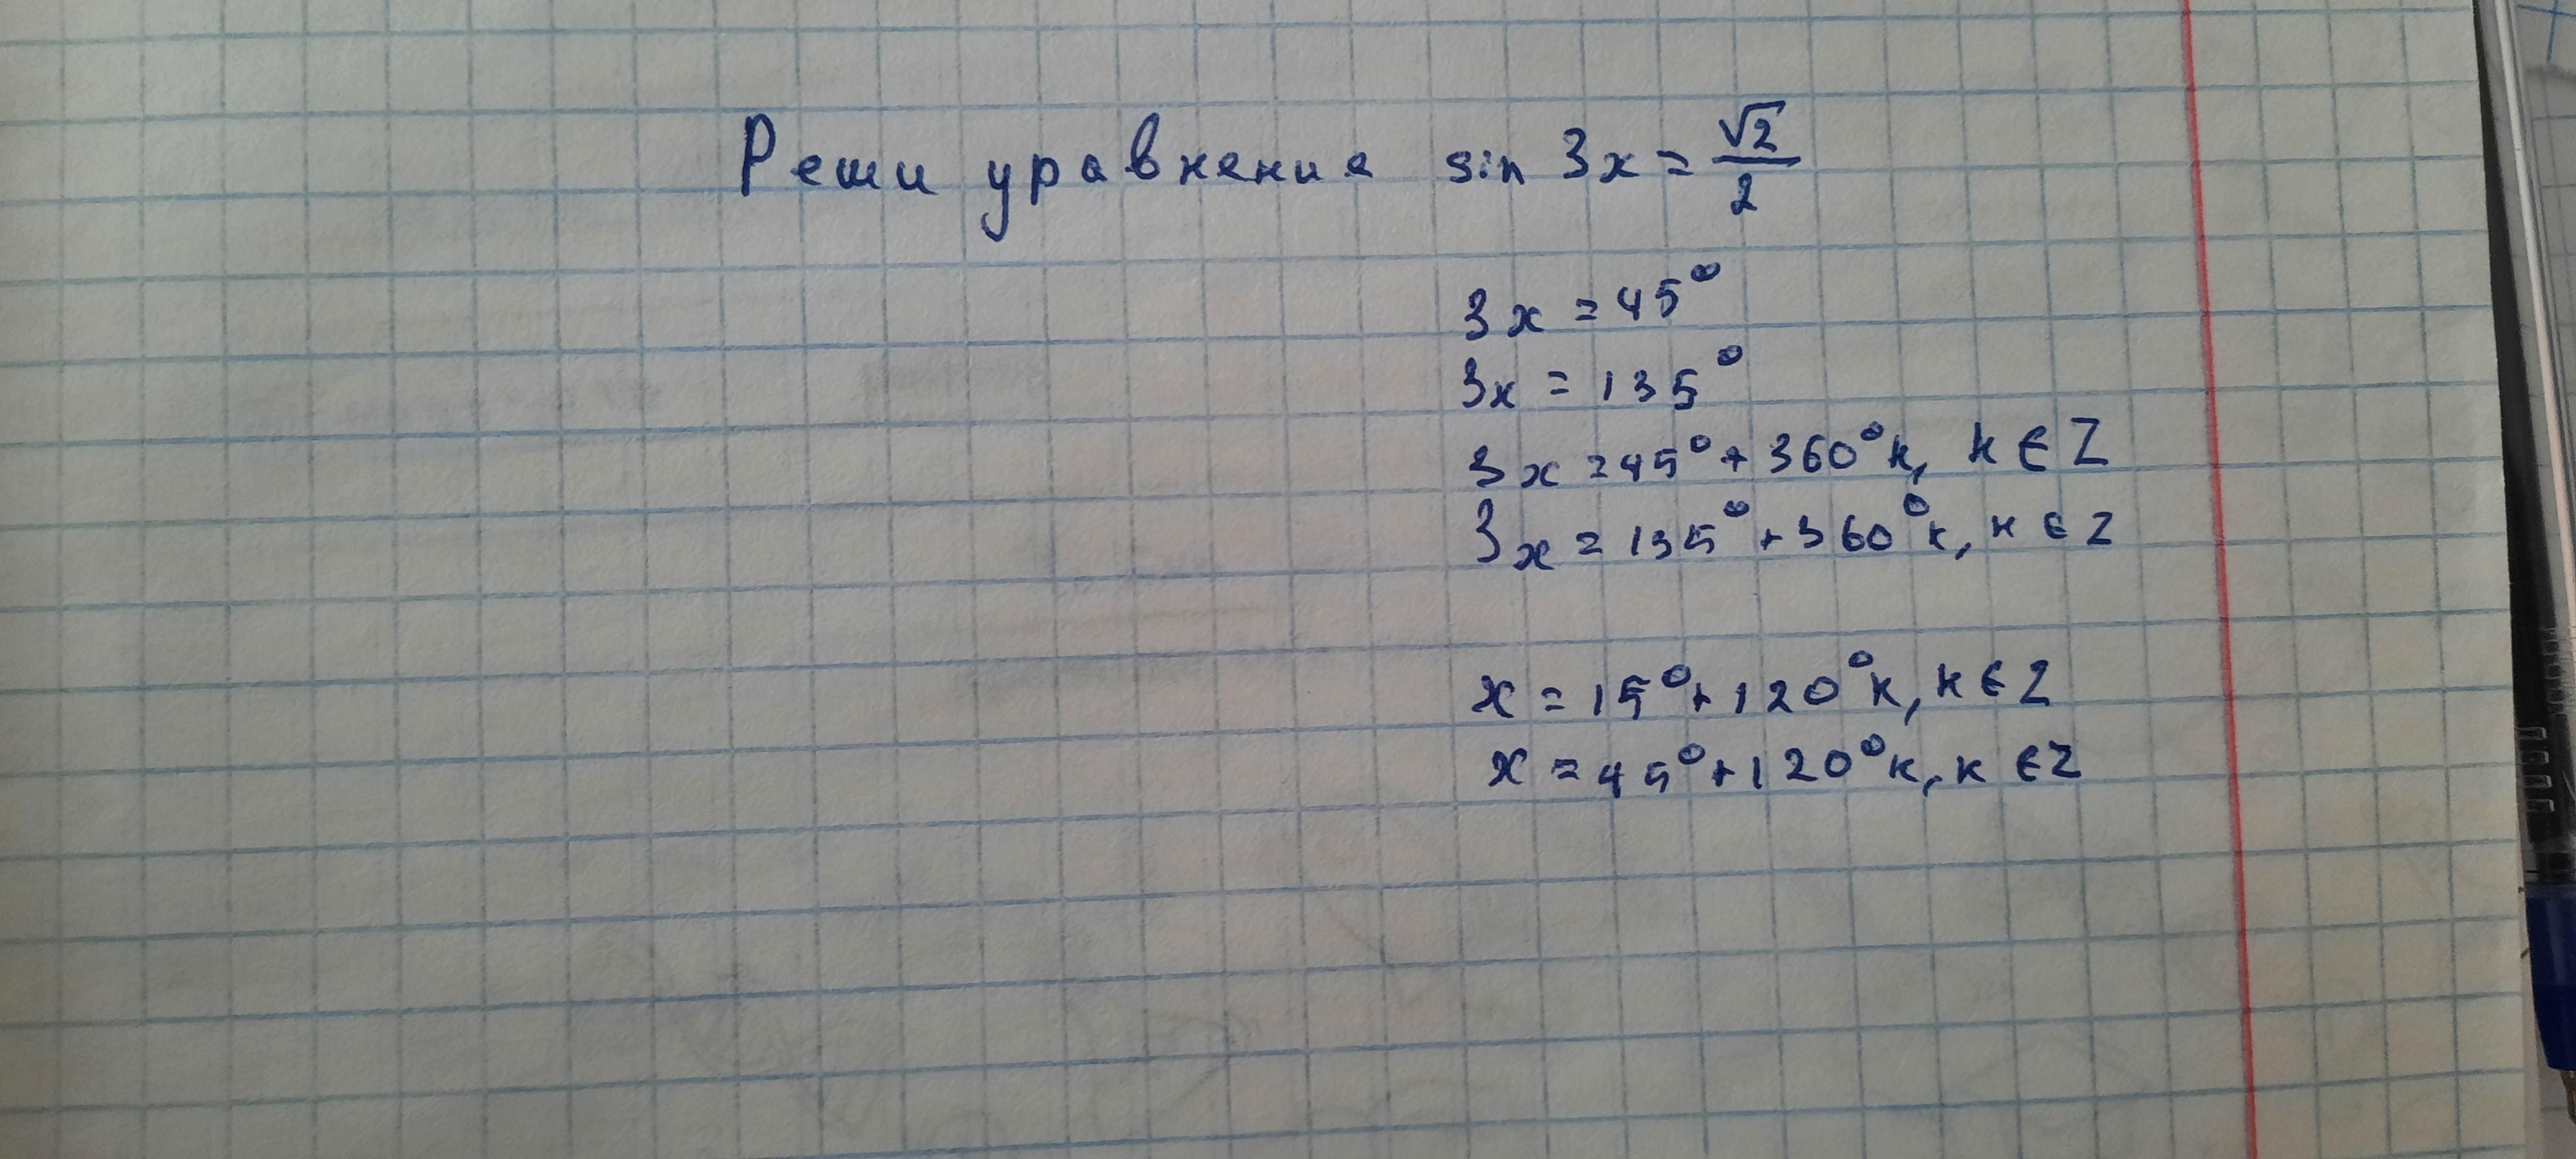 Реши уравнение sin 3x = √2/2
3x = 45°
3x = 135°
3x = 45° + 360°k, k ∈ Z
3x = 135° + 360°k, k ∈ Z
x = 15° + 120°k, k ∈ Z
x = 45° + 120°k, k ∈ Z